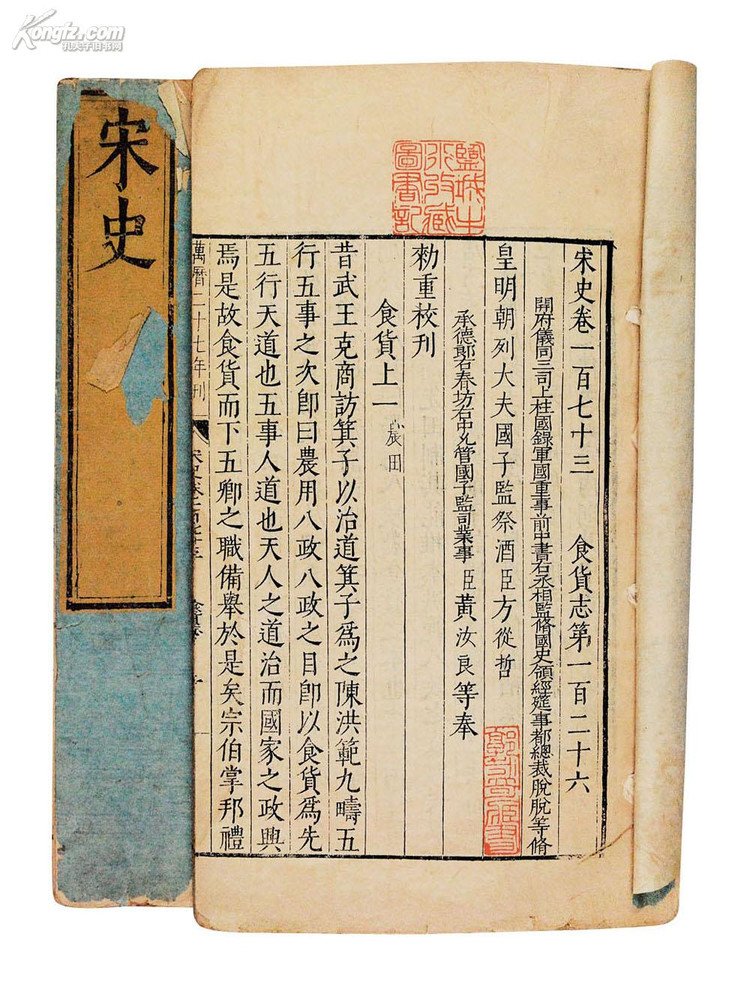 Kongfz.com
孔夫子旧书网
宋史
鹽城牛
行攸藏
圖書記
宋史卷一百七十三　食貨志第一百二十六
開府儀同三司上柱國錄軍國重事前中書右丞相監脩國史領經筵事都總裁脫脫等脩
皇明朝列大夫國子監祭酒臣方從哲
承德郎右春坊右中允管國子監司業事臣黃汝良等奉
勑重校刊
食貨上一　農田
昔武王克商訪箕子以治道箕子爲之陳洪範九疇五
行五事之次卽曰農用八政八政之目卽以食貨爲先
五行天道也五事人道也天人之道治而國家之政興
焉是故食貨而下五卿之職備舉於是矣宗伯掌邦禮
萬曆二十七年刊
宋史卷一百七十三